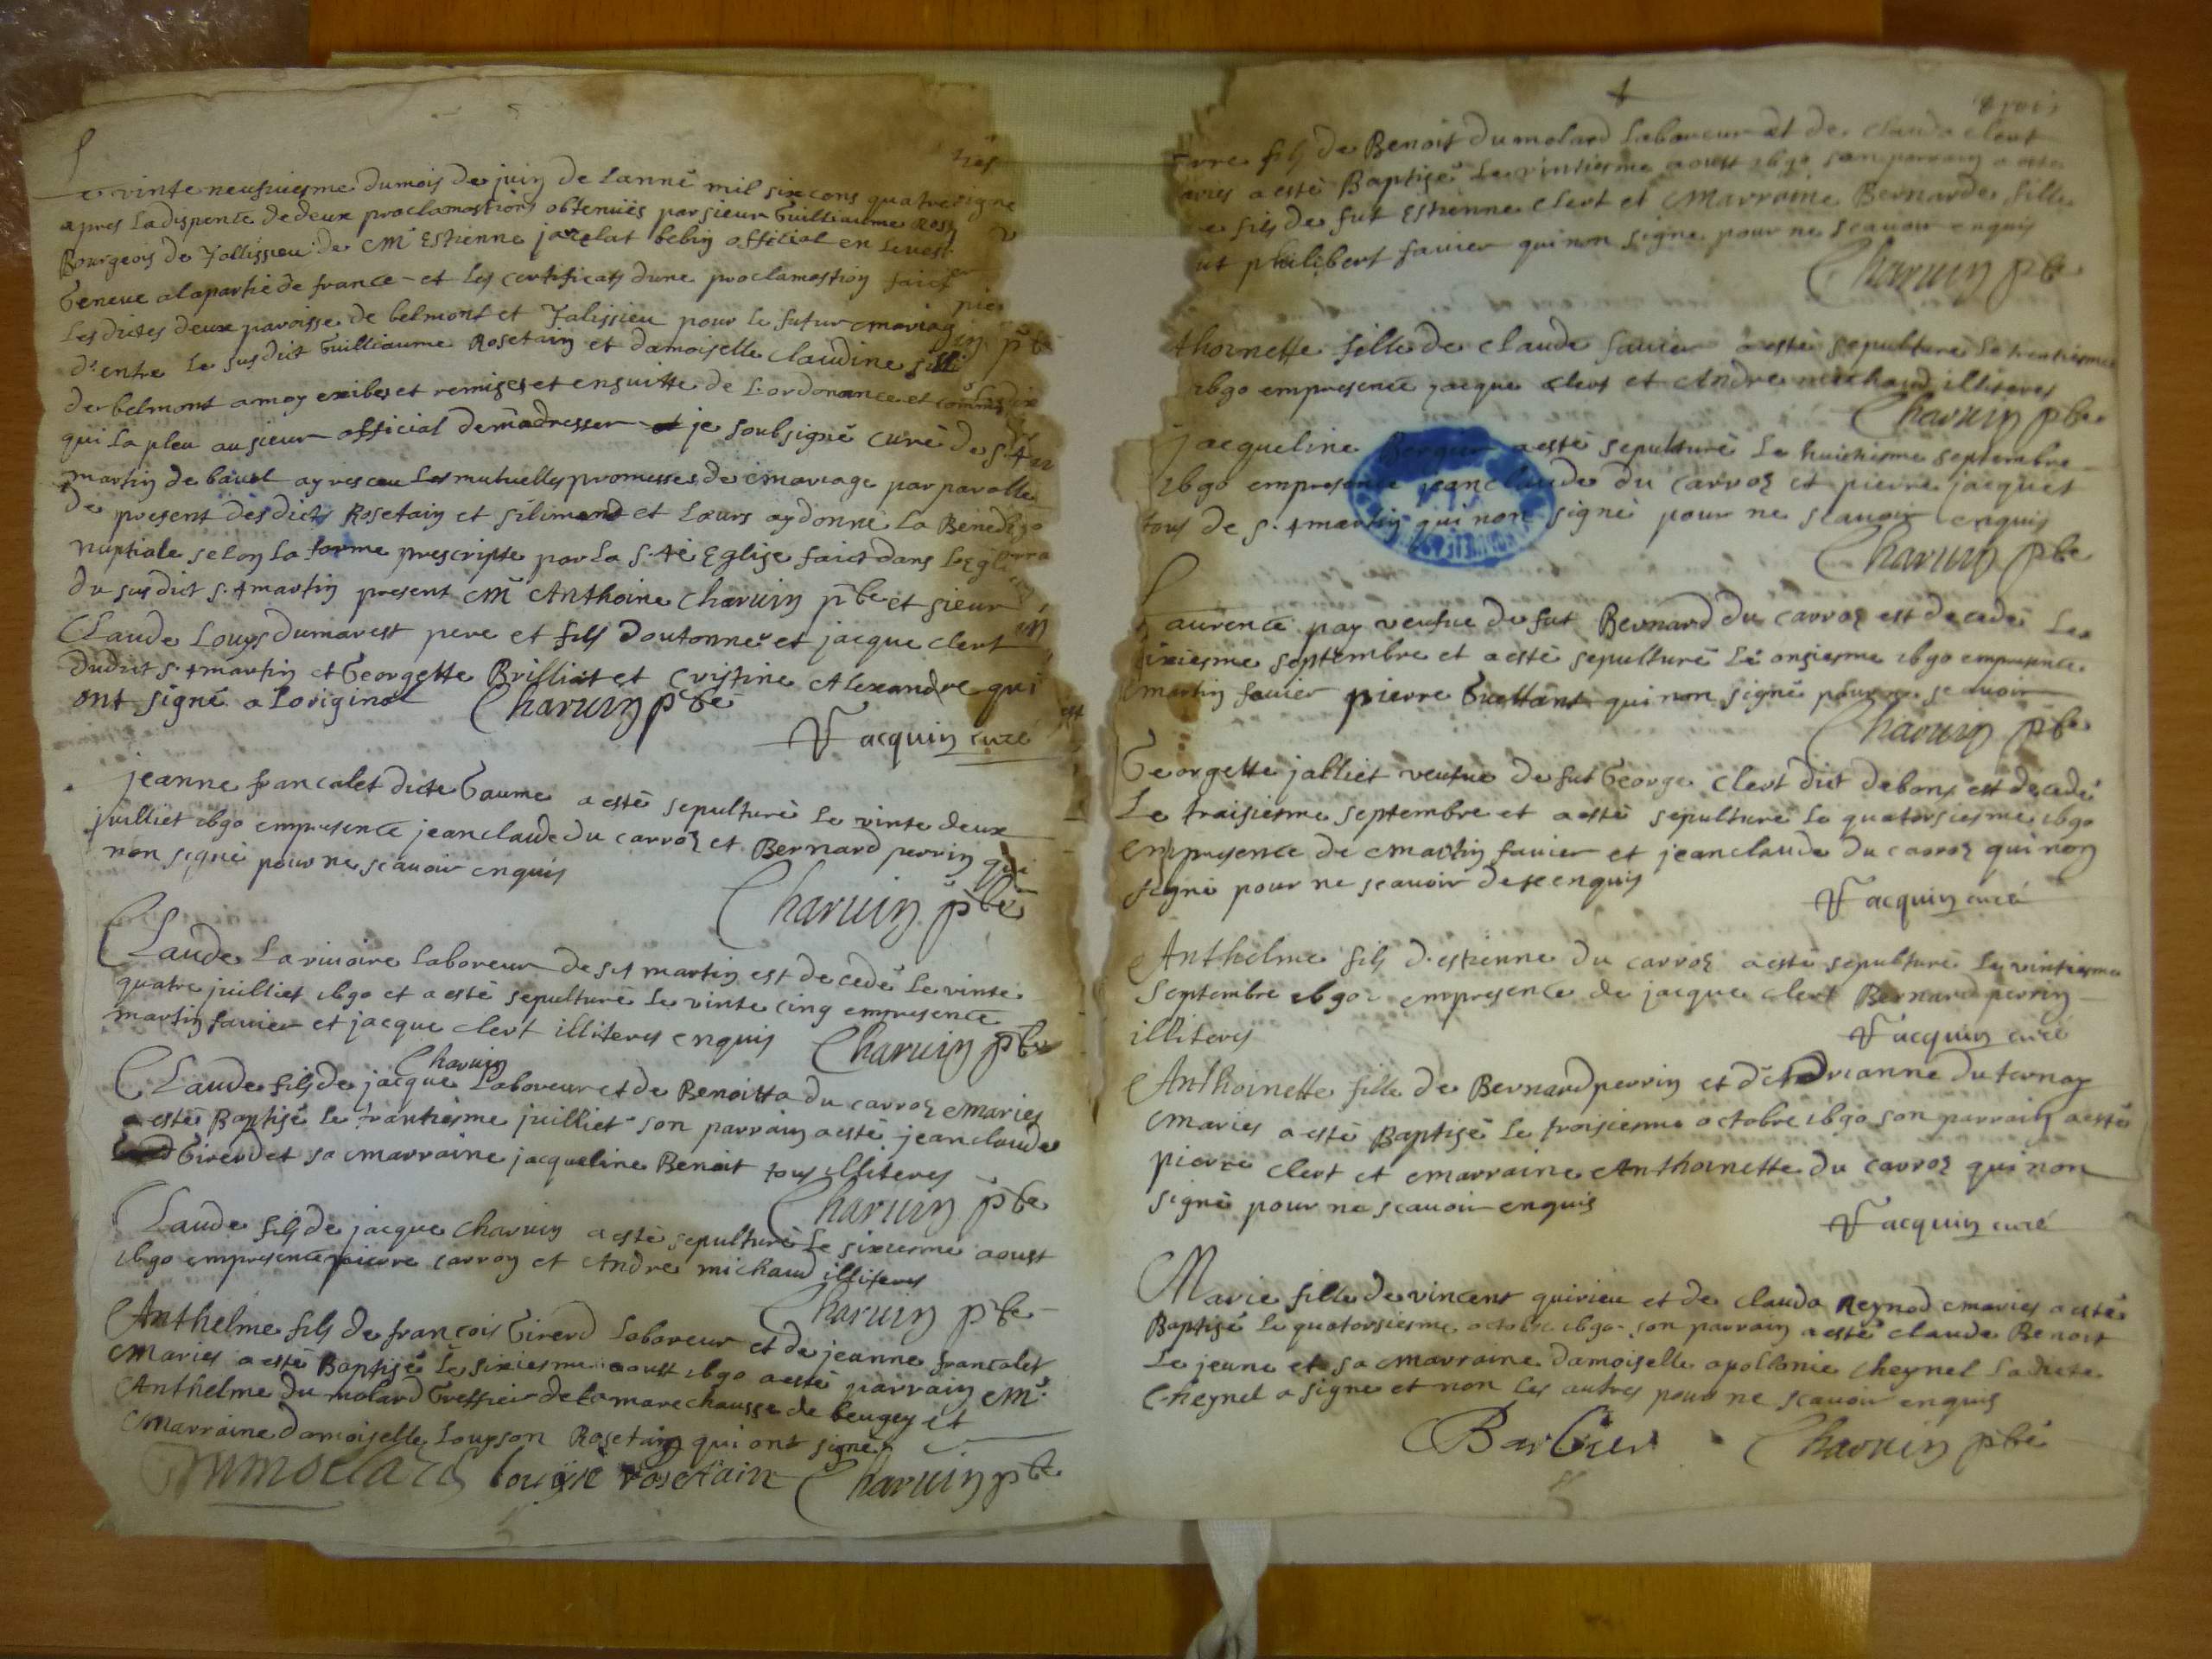 Le vinte neufviesme du mois de juin de l'anné mil six cens quatre vigne
apres la dispence de deux proclamostions obtenuës par sieur Guilliaume Ros
Bourgeois de Tallissieu de Mr Estienne jacelat bebin offitial en levest
Geneve a la partie de france et les certificats d'une proclamostion faict
les dictes deux paroisse de belmont et Talissieu pour le futur mariag
d'entre le susdict Guilliaume Rosetain et damoiselle Claudine sili
de belmont a moy exibes et remises et ensuitte de l'ordonance et comm
qui la pleu au sieur official de m'adresser je soubsigné curé de St
martin de bavel ay resceu les mutuelles promesses de mariage par parolle
de present desdicts Rosetain et silimand et leurs ay donné la Benedi
nuptiale selon la forme prescripte par la Ste Eglise faict dans l'Egli
du susdict St martin present Mr Anthoine Charvin pbre et sieur
Claude Louys dumarest pere et fils d'outonne et jacque clert
dudict St martin et Georgette Brilliat et Cristine Alexandre qui
ont signé a l'original Charvin pbre
Jacquin curé
jeanne francalet dicte Gaume a esté sepulturé le vinte deux
juilliet 1690 en presence jean claude du carroz et Bernard perrin qui
non signé pour ne scavoir enquis
Charvin pbre
Claude la rivoire laboreur de St martin est decedé le vinte
quatre juilliet 1690 et a esté sepulturé le vinte cinq en presence
martin favier et jacque clert illiteres enquis Charvin pbre
Charvin
Claude fils de jacque laboreur et de Benoitta du carroz maries
a esté Baptisé le trantiesme juilliet son parrain a esté jean claude
Girerd et sa marraine jacqueline Benoit tous illiteres
Charvin pbre
Claude fils de jacque Charvin a esté sepulturé le sixiesme aoust
1690 en presence pierre carron et Andre michaud illiteres
Charvin pbre
Anthelme fils de francois Girerd laboreur et de jeanne francalet
maries a esté Baptisé le sixiesme aoust 1690 a esté parrain Mr
Anthelme du molard Greffier de la marechaussee de beugey et
marraine damoiselle Louyson Rosetain qui ont signe
Dumollard louyse rosetain Charvin pbre
trois
fils de Benoit dumolard laboreur et de Clauda clert
maries a esté Baptisé le vintiesme aoust 1690 son parrain a esté
fils de fut Estienne Clert et Marraine Bernarde fille
philibert favier qui non signe pour ne scavoir enquis
Charvin pbre
thoinette fille de claude favier a esté sepulturé le trentiesme
1690 en presence jacque clert et Andre michaud illiteres
Charvin pbre
jacqueline Bergier a esté sepulturé le huictiesme septembre
1690 en presence jean claude du carroz et pierre jacquet
tous de St martin qui non signé pour ne scavoir enquis
Charvin pbre
Laurence pay veufve de fut Bernard du carroz est decedé le
sixiesme septembre et a esté sepulturé le onziesme 1690 en presence
martin favier pierre Guettant qui non signé pour ne scavoir
Charvin pbre
Georgette jalliet veufve de fut George Clert dict debons est decedé
Le traisiesme septembre et a esté sepulturé le quatorsiesme 1690
en presence de martin favier et jean claude du carroz qui non
signé pour ne scavoir de ce enquis
Jacquin curé
Anthelme fils d'estienne du carroz a esté sepulturé le vintiesme
Septembre 1690 en presence de jacque clert Bernard perrin
illiteres
Jacquin curé
Anthoinette fille de Bernard perrin et d'Adrianne du ternay
maries a esté Baptisé le troisiesme octobre 1690 son parrain a esté
pierre clert et marraine Anthoinette du carroz qui non
signé pour ne scavoir enquis
Jacquin curé
Marie fille de vincent quirieu et de clauda Reynod maries a esté
Baptisé le quatorsiesme octobre 1690 son parrain a esté claude Benoit
le jeune et sa marraine damoiselle apollonie cheynel ladicte
Cheynel a signe et non les autres pour ne scavoir enquis
Barbier Charvin pbre